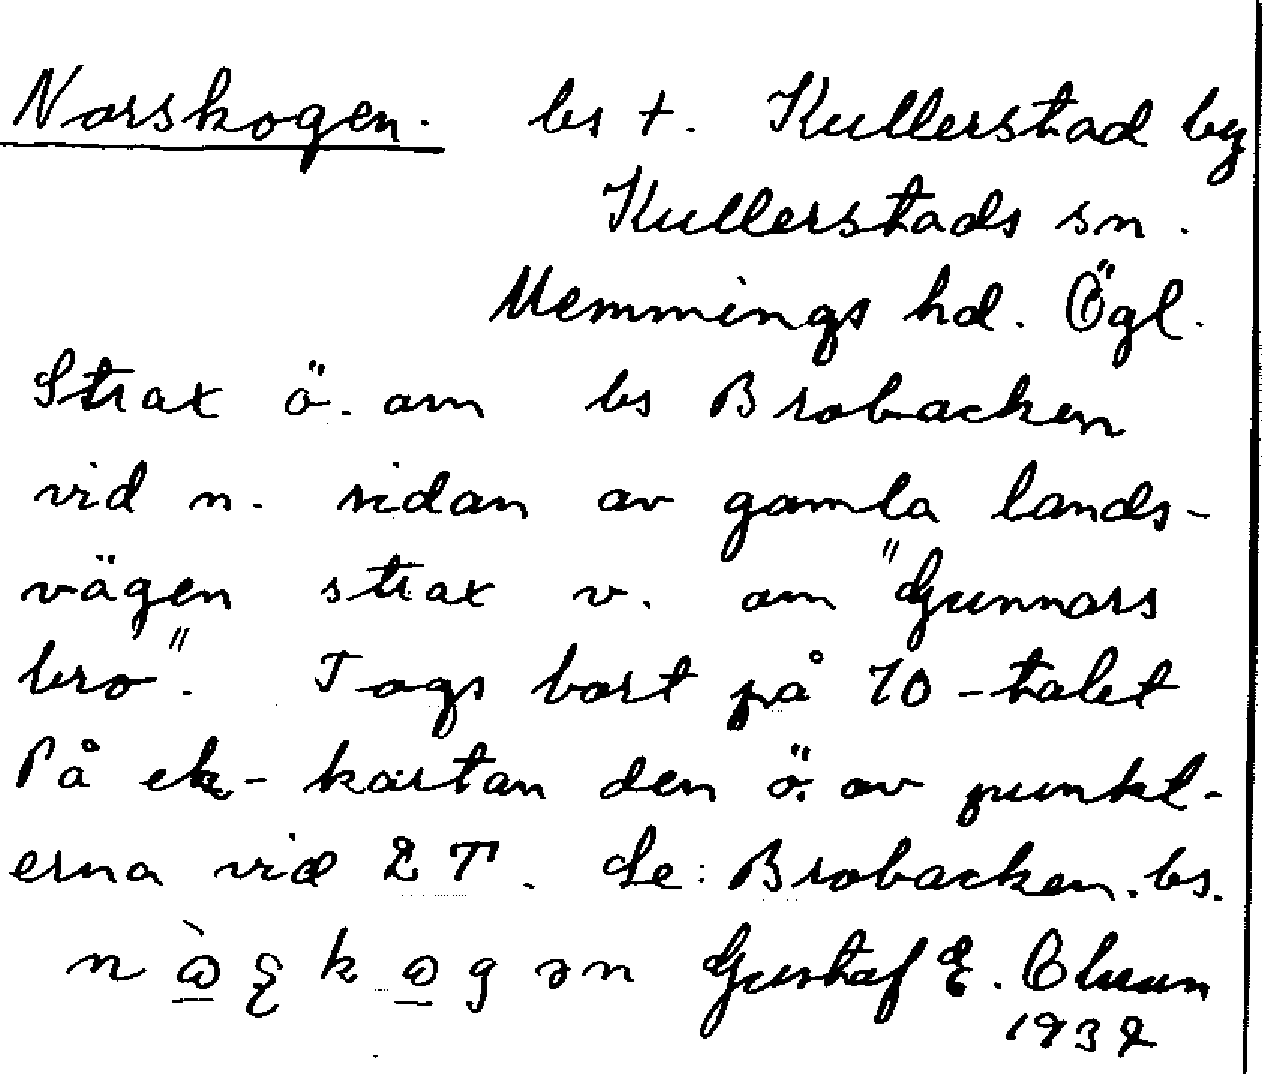 Norskogen. bs +. Kullerstad by
Kullerstads sn.
Memmings hd. Ögl.
Strax ö. om bs Brobacken
vid n. sidan av gamla lands-
vägen strax v. om "Gunnars
bro". Togs bort på 70-talet
På ek-kartan den ö. av punkt-
erna vid 2 T. Se: Brobacken. bs.
Gustaf E. Olsson